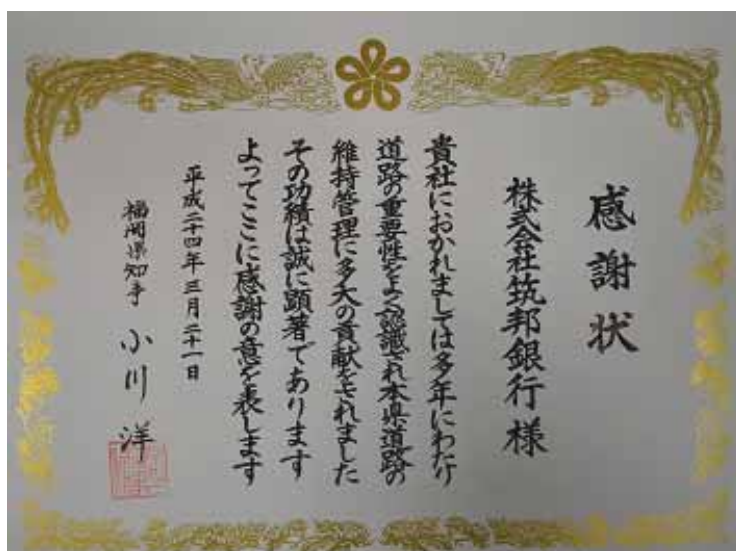 感謝状
株式会社筑邦銀行様
貴社におかれましては多年にわたり
道路の重要性をよく認識され本県道路の
維持管理に多大の貢献をされました
その功績は誠に顕著であります
よってここに感謝の意を表します
平成二十四年三月二十一日
福岡県知事 小川洋